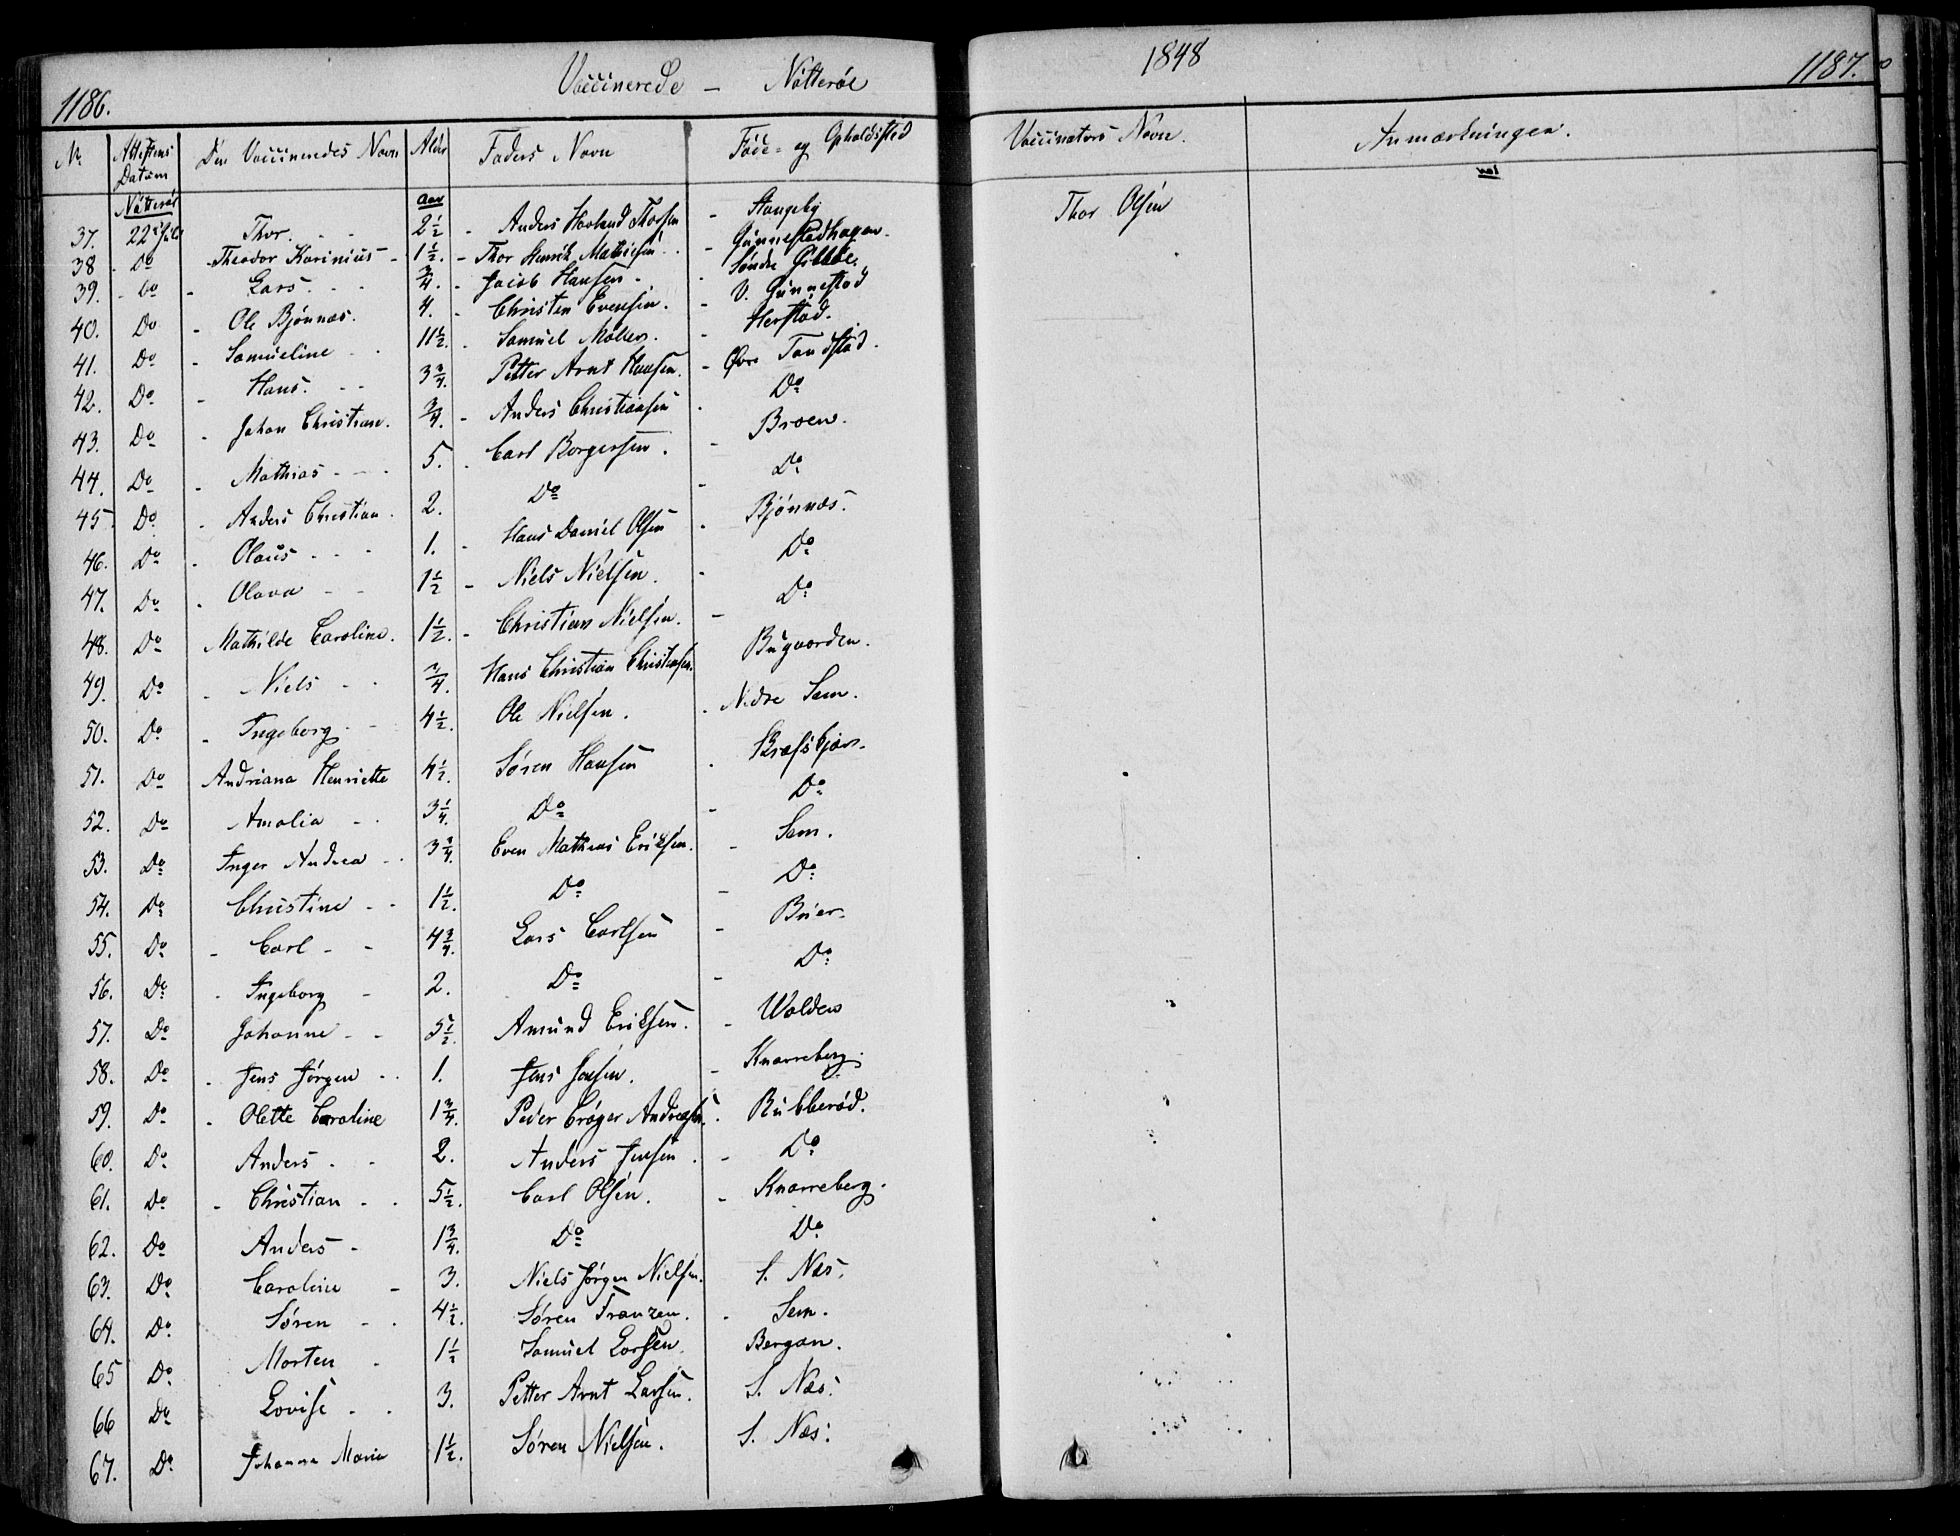 1186. Vaccinerede – Nøtterøe
1848 1187.
No Attestens Datum Den Vaccineredes Navn Alder Faders Navn Føde- og Opholdssted
Vaccinators Navn. Anmærkninger.
Nøtterøe Aar
37. 22 Thor. 2½ Anders Thorsen Stangeby Thor Olsen
38 Do Theodor Karinius 1½. Thor Henrik Mathisen Gunnestadhagen.
39. Do Lars ¾. Jacob Hansen Søndre
40. Do Ole Bjønnæs. 4. Christen Evensen. V. Gunnestad
41. Do Samueline 11½. Samuel Møller. Herstad.
42. Do Hans. 3¾. Petter Arnt Hansen. Øvre Tandstad.
43. Do Johan Christian. ¾. Anders Christiansen Do
44. Do Mathias 5. Carl Borgersen. Broen.
45 Do Anders Christian. 2. Do Do
46. Do Olaus 1. Hans Daniel Olsen Bjønnæs.
47. Do Olava 1½ Niels Nielsen. Do
48. Do Mathilde Caroline. 1½. Christian Nielsen. Do
49. Do Niels ¾. Hans Christian Christensen. Bugaarden.
50. Do Ingeborg 4½. Ole Nielsen. Nedre Sem.
51. Do Andriana Henriette 4½. Søren Hansen
52. Do Amalia 3¼. Do Do
53. Do Inger Andrea 3¾. Even Mathias Eriksen. Sem.
54. Do Christine 1½. Do Do
55. Do Carl 4¾. Lars Carlsen
56. Do Ingeborg 2. Do Do
57. Do Johanne 5½. Amund Eriksen.
58. Do Jens Jørgen 1. Jens Jensen. Knarreberg.
59. Do Olette Caroline 1¾. Peder Crøger Andreasen. Rubberød.
60. Do Anders 2. Anders Jensen Do
61. Do Christian 5½. Carl Olsen. Knarreberg.
62. Do Anders 1¾. Do Do
63. Do Caroline 3. Niels Jørgen Nielsen. S. Næs.
64. Do Søren 4½. Søren Franzen. Sem.
65 Do Morten 1½ Samuel Larsen. Bergan.
66 Do Lovise 3. Petter Arnt Larsen. S. Næs.
67. Do Johanna Maria 1½. Søren Nielsen. S. Næs.